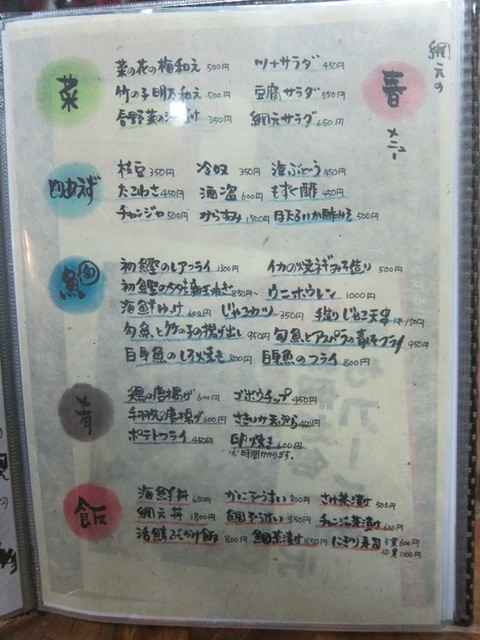 網元の
春
メニュー
菜
菜の花の梅和え 500円 ツナサラダ 450円
竹の子明太和え 500円 豆腐サラダ 550円
春野菜の 350円 網元サラダ 650円
とりあえず
枝豆 350円 冷奴 350円 海ぶどう 450円
たこわさ 450円 酒盗 600円 もずく酢 450円
チャンジャ 500円 からすみ 1500円 ほたるいか酢みそ 500円
旬
魚
初鰹のレアフライ 1300円 イカの焼ネギみそ造り 500円
初鰹のタタキ 新玉ねぎ 850円〜 ウニホウレン 1000円
海鮮ゆっけ 600円 じゃこカツ 350円 じゃこ天串 1本150円
旬魚と竹の子の揚げ出し 950円 旬魚とアスパラの青じそフライ 950円
白身魚の 800円 白身魚のフライ 800円
肴
鶏の唐揚げ 600円 ゴボウチップ 450円
手羽先の唐揚げ 600円 さきいか天ぷら 450円
ポテトフライ 450円 卵焼き 600円
時間かかります。
飯
海鮮丼 650円 かにぞうすい 800円 さけ茶漬け 500円
網元丼 1800円 鯛ぞうすい 850円 チャンジャ茶漬け 600円
活鯖ぶっかけ飯 800円 鯛茶漬け 850円 にぎり寿司 5貫 600円
10貫 1100円